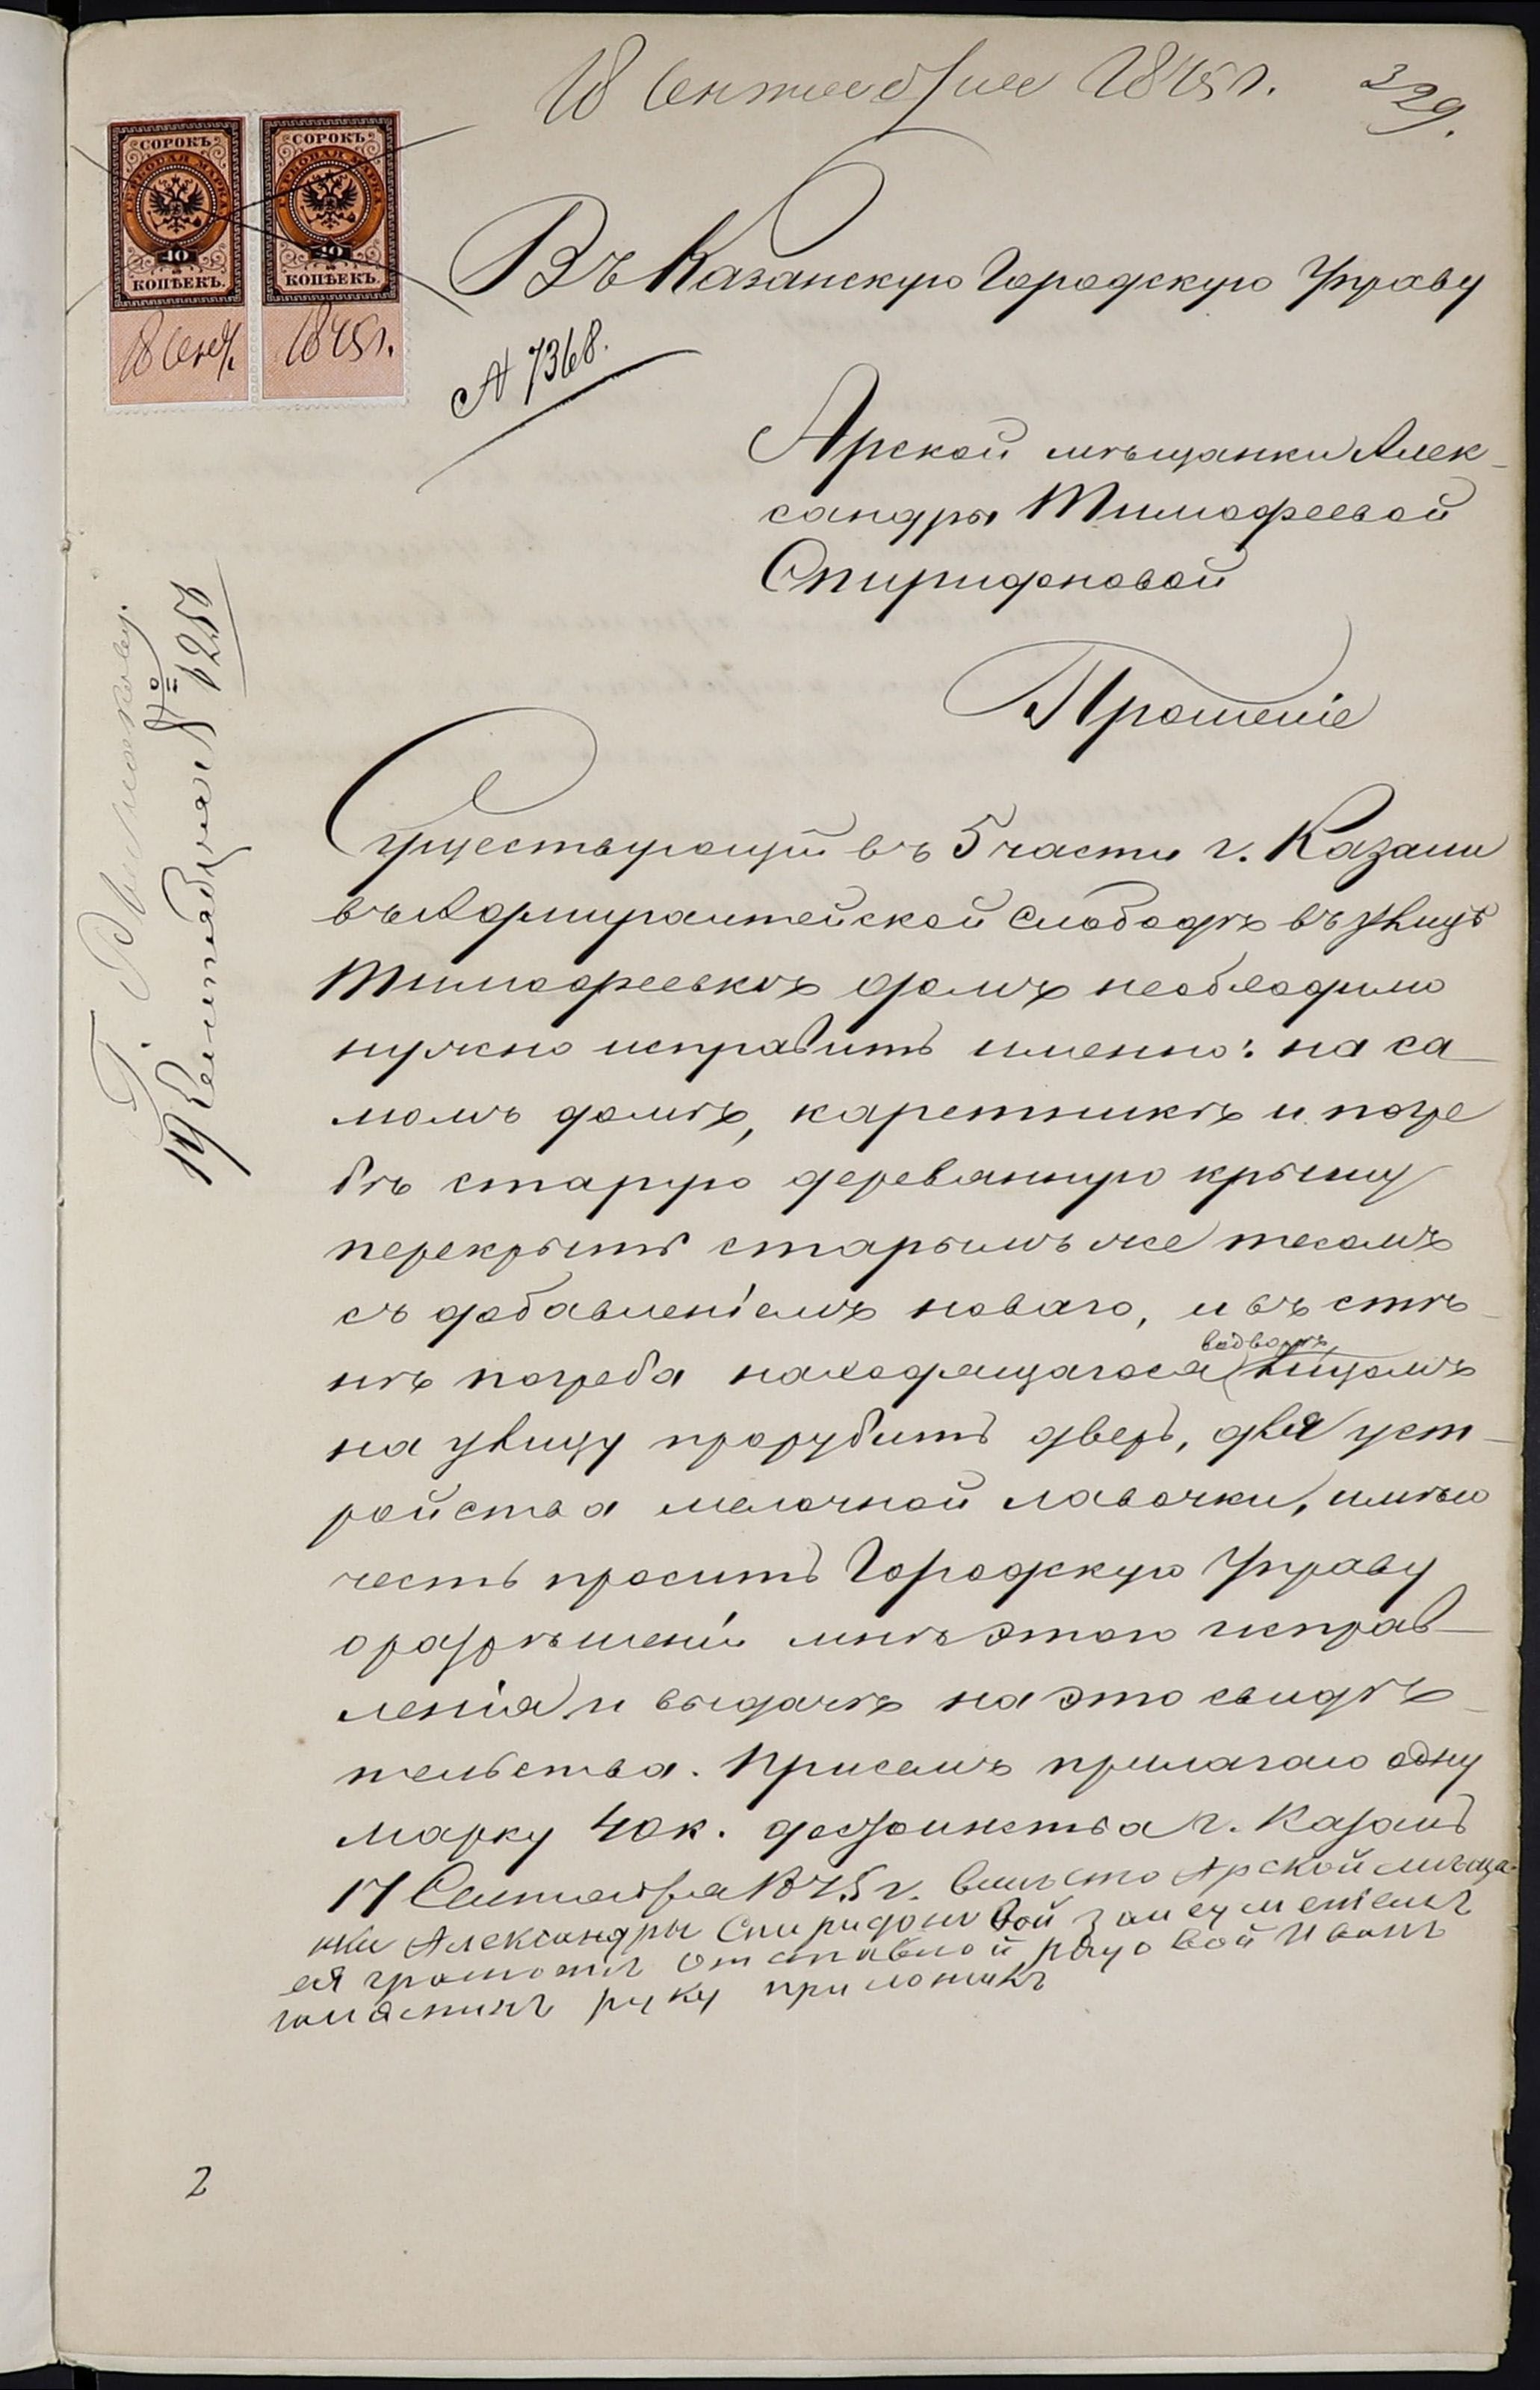 18 Сентября 1875 г.
329.
СОРОКЪ
ГЕРБОВАЯ МАРКА
40
КОПѢЕКЪ.
СОРОКЪ
ГЕРБОВАЯ МАРКА
40
КОПѢЕКЪ.
18 Сент.
1875 г.
Въ Казанскую Городскую Управу
№ 7368.
Арской мѣщанки Алек-
сандры Тимофеевой
Спиридоновой
Прошеніе
19 Сентября № 1256
Существующій въ 5 части г. Казани
въ Адмиралтейской слободѣ въ улицѣ
Тимофеевкѣ домъ необходимо
нужно исправить именно: на са-
момъ домѣ, каретникѣ и погре
бѣ старую деревянную крышу
перекрыть старымъ же тесомъ
съ добавленіемъ новаго, и въ стѣ-
нѣ погреба находящагося въ дворѣ лицомъ
на улицу прорубить дверь, для уст-
ройства мелочной лавочки, имѣю
честь просить Городскую Управу
о разрѣшеніи мнѣ этого исправ-
ленія и выдачѣ на это свидѣ-
тельства. При семъ прилагаю одну
марку 40 к. достоинства г. Казань
17 Сентября 1875 г. вмѣсто Арской мѣща-
нки Александры Спиридоновой за неуменіемъ
ея грамоты отставной рядовой Иванъ
руку приложилъ
2